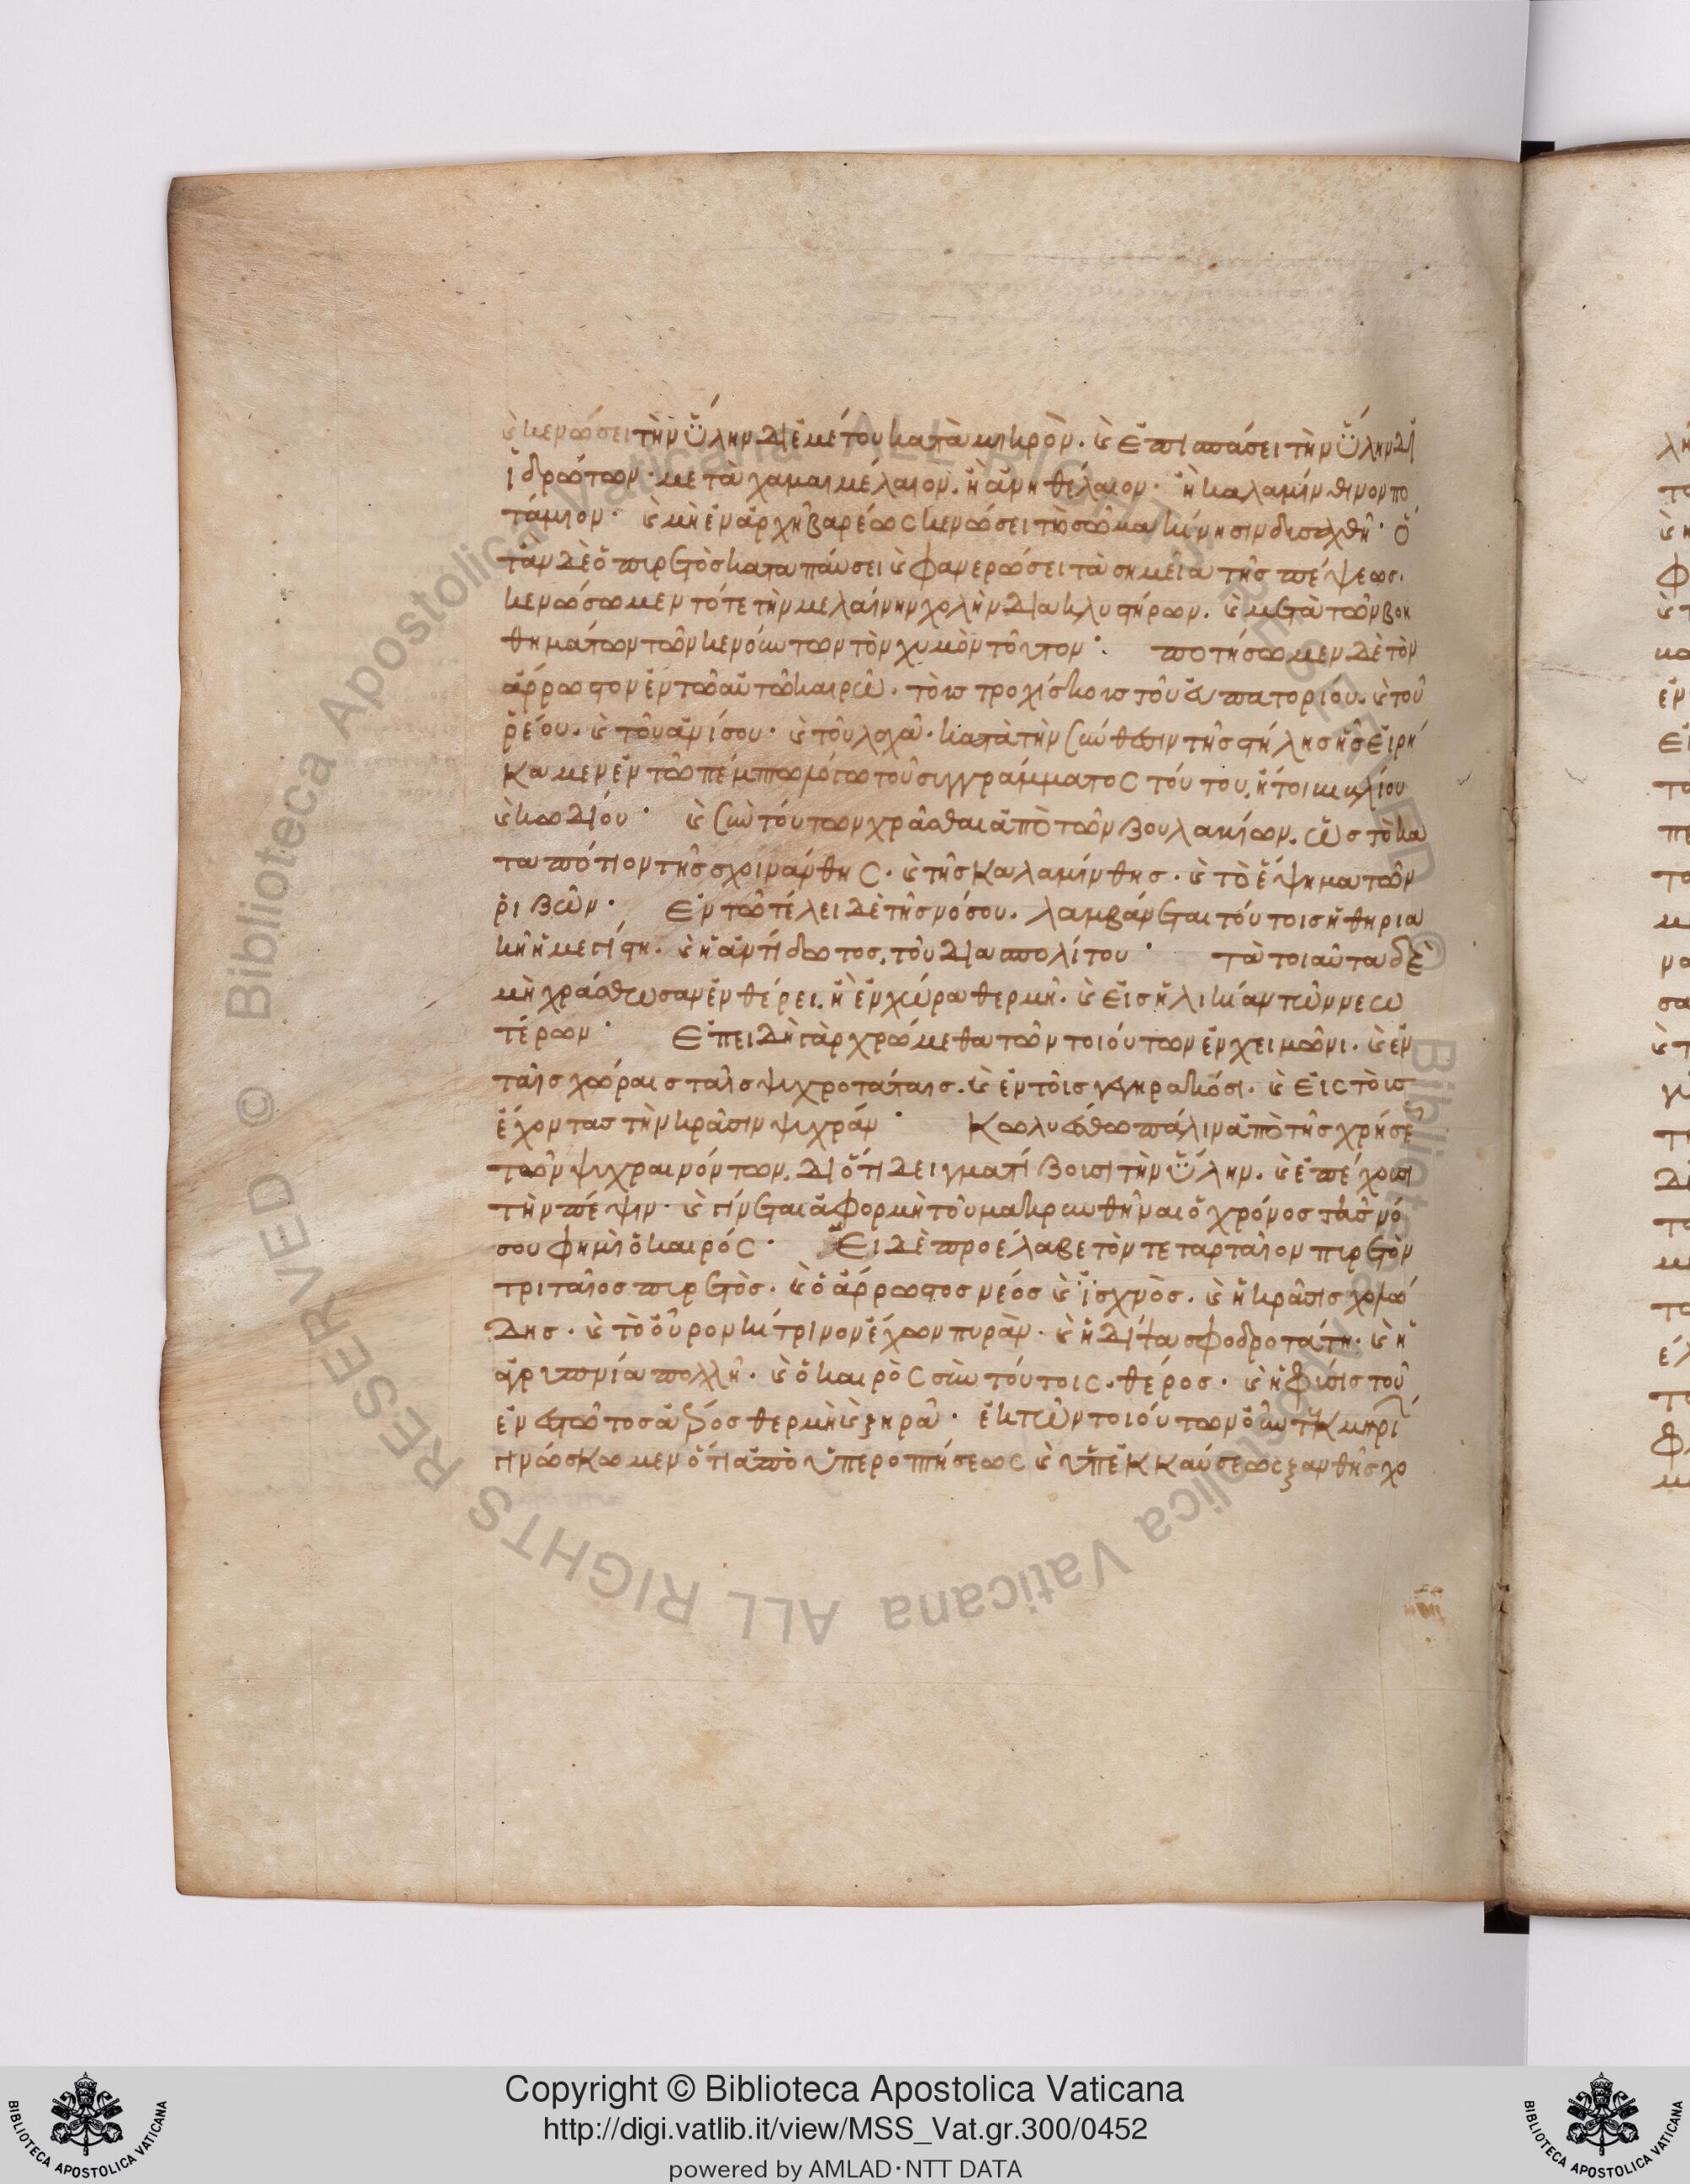 καὶ κενώσει τὴν ὕλην δι' ἐμέτου κατὰ μικρὸν. καὶ ἐπισπάσει τὴν ὕλην δι'
ἱδρώτων· μετὰ χαμαιμέλαιον. ἢ ἀνηθέλαιον· ἢ καλαμίνθινον πο
τάμιον· καὶ μὴ ἐν ἀρχῆ βαρέως κενώσει τὸ σῶμα κίνησιν
τὰν δὲ ὁ πυρετὸς καταπάυσει καὶ φανερώσει τὰ σημεῖα τῆς πέψεως.
κενώσωμεν τότε τὴν μελαίνην χολὴν δια κλυστήρων. καὶ μετὰ τῶν βοη
θημάτων τῶν κενούντων τὸν χυμὸν τοῦτον· ποτήσωμεν δὲ τὸν
ἄρρωστον ἐν τῶ αὐτῶ καιρῶ. τοὺς τροχίσκους τοῦ εὐπατορίου. καὶ τοῦ
ῥέου. καὶ τοῦ ἀνίσου· καὶ τοῦ λαχᾶ. κατὰ τὴν σύνθεσιν τῆς στήλης ἧς εἰρή
καμεν ἐν τῶ πέμπτω λόγω τοῦ συγγράμματος τούτου. ἤτοι
καὶ κωδίου· καὶ σὺν τούτων χρᾶσθαι ἀπὸ τῶν βουλακίων. ὡς τὸ κα
ταπότιον τῆς σχοινάνθης. καὶ τῆς καλαμίνθης. καὶ τὸ ἕψημα τῶν
ῥιζῶν· Ἐν τῶ τέλει δὲ τῆς νόσου. λαμβάνεται τούτοις ἡ θηρια
κὴ ἡ μεγίστη. καὶ ἡ ἀντίδωτος. τοῦ διασπολίτου· τὰ τοιαῦτα δὲ
μὴ χράσθωσαν ἐν θέρει. ἢ ἐν χώρα θερμῆ. καὶ εἰς ἡλικίαν τῶν νεω
τέρων· Ἐπειδὴ γὰρ χρώμεθα τῶν τοιούτων ἐν χειμῶνι. καὶ ἐν
ταῖς χώραις ταῖς ψυχροτάταις. καὶ ἐν τοῖς γηρακόσι. καὶ εἰς τοὺς
ἔχοντας τὴν κρᾶσιν ψυχράν· Κωλυέσθω πάλιν ἀπὸ τῆς χρήσε
τῶν ψυχραινόντων. διότι δειγματίζουσι τὴν ὕλην. καὶ ἐπέχουσι
τὴν πέψιν· καὶ γίνεται ἀφορμὴ τοῦ μακρυνθῆναι ὁ χρόνος τῆς νό
σου φημὶ ὁ καιρός· Εἰ δὲ προέλαβε τὸν τεταρταῖον πυρετὸν
τριταῖος πυρετὸς. καὶ ὁ ἄρρωστος νέος καὶ ἰσχνὸς. καὶ ἡ κρᾶσις χολώ
δης. καὶ τὸ οὖρον κίτρινον ἔχων πυρὰν. καὶ ἡ δίψα σφοδροτάτη. καὶ ἡ
ἀγρυπνία πολλὴ. καὶ ὁ καιρὸς σὺν τούτοις. θέρος. καὶ ἡ φύσις τοῦ
ἐνεστῶτος ἀέρος θερμὴ καὶ ξηρά· ἐκ τῶν τοιούτων οὖν τεκμηρί
γινώσκωμεν ὅτι ἀπὸ ὑπεροπτήσεως καὶ ὑπεκκαύσεως ξανθῆς χο
Copyright © Biblioteca Apostolica Vaticana
http://digi.vatlib.it/view/MSS_Vat.gr.300/0452
powered by AMLAD·NTT DATA